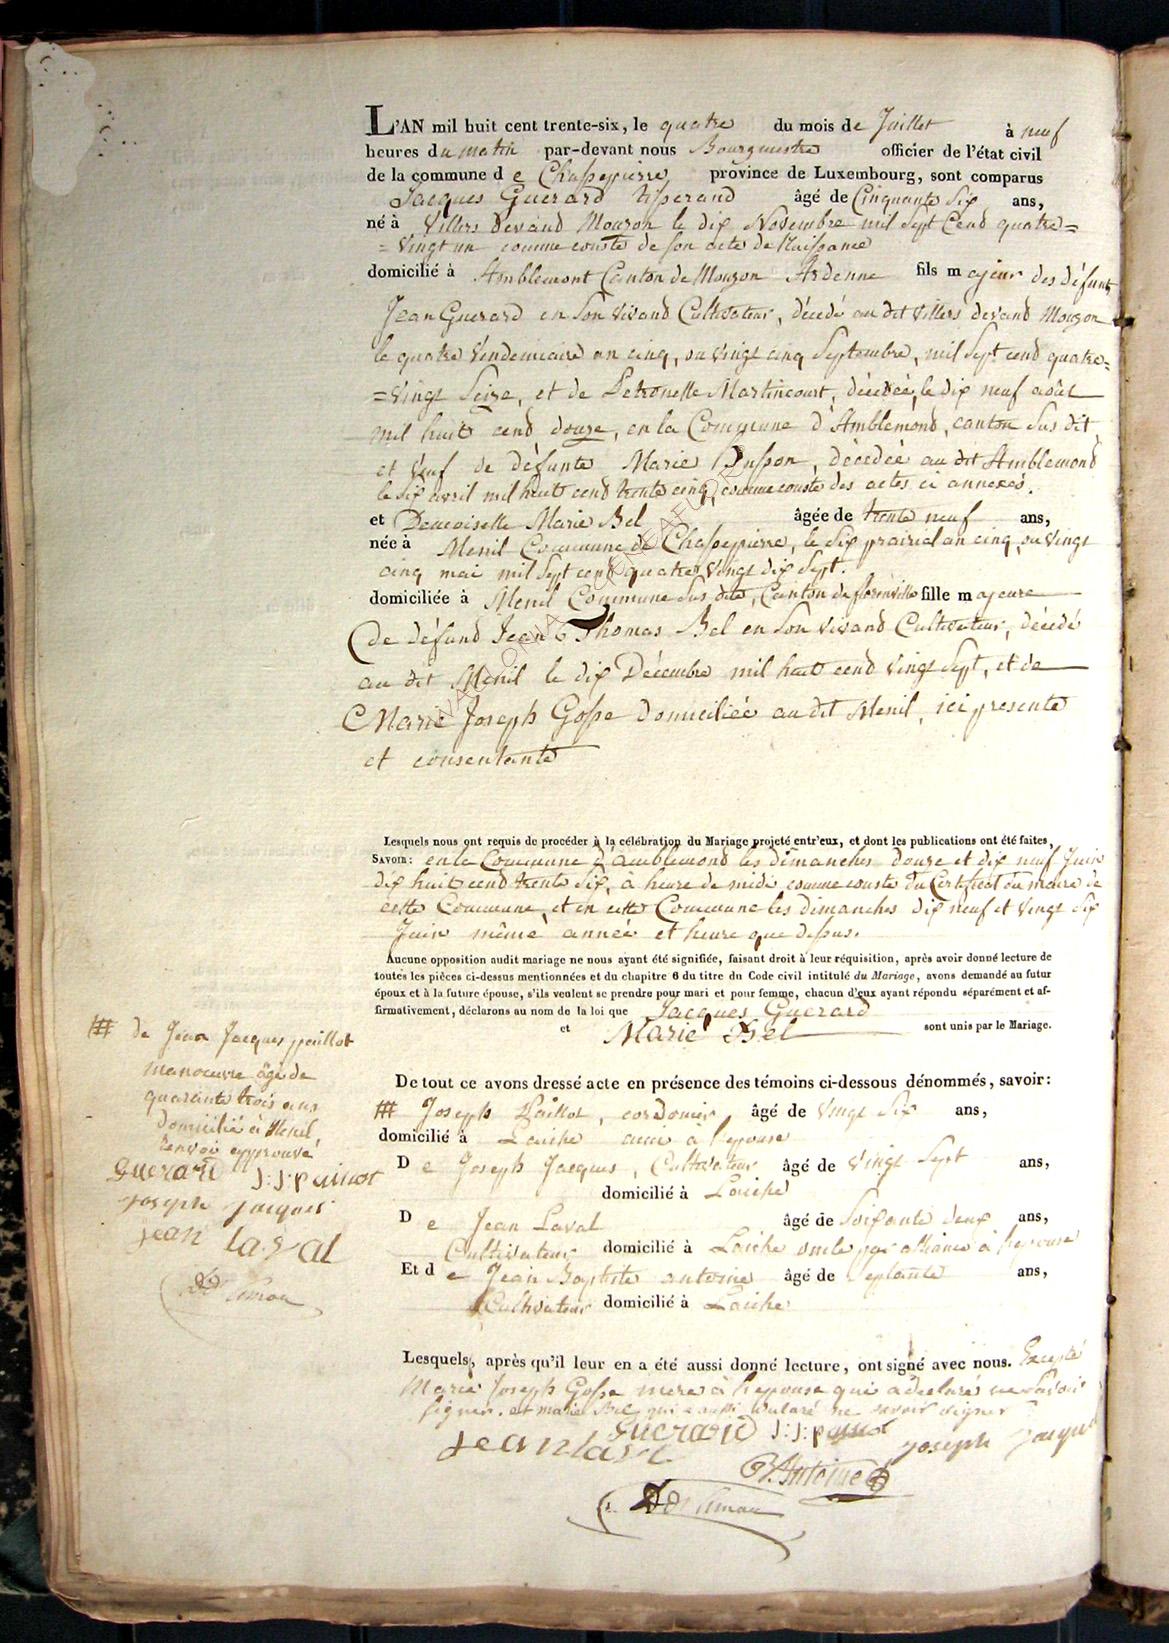 L'AN mil huit cent trente-six, le quatre du mois de Juillet à neuf
heures du matin par-devant nous Bourgmestre officier de l'état civil
de la commune de Chassepierre province de Luxembourg, sont comparus
Jacques Guerard tisserand âgé de Cinquante Six ans,
né à Villers devand Mouzon le dix Novembre mil Sept Cend quatre=
=Vingt un comme conste de son acte de Naissance
domicilié à Amblemont Canton de Mouzon Ardenne fils majeur des défunts
Jean Guerard en Son vivand Cultivateur, décédé au dit Villers devand Mouzon
le quatre Vendemiaire an cinq, ou vingt cinq Septembre, mil Sept cend quatre=
=Vingt Seize, et de Petronelle Martincourt, décédée, le dix neuf août
mil huit cend douze, en la Commune d'Amblemond, canton Sus dit
et Veuf de défunte Marie Husson, décédée au dit Amblemond
le six avril mil huit cend trente cinq, comme conste des actes ci annexés.
et Demoiselle Marie Bel âgée de trente neuf ans,
née à Menil Commune de Chassepierre, le Six prairial an cinq, ou vingt
cinq mai mil Sept cend quatre Vingt dix Sept.
domiciliée à Menil Commune Sus dite, Canton de florenville fille majeure
de défund Jean Thomas Bel en Son vivand Cultivateur, décédé
au dit Menil le dix Décembre mil huit cend vingt Sept, et de
Marie Joseph Gosse domiciliée au dit Menil, ici presente
et consentante
Lesquels nous ont requis de procéder à la célébration du Mariage projeté entr'eux, et dont les publications ont été faites,
SAVOIR: en la Commune d'amblemond les dimanches douze et dix neuf Juin
dix huit cend trente Six, à heure de midi comme conste du Certificat du maire de
cette Commune, et en cette Commune les dimanches dix neuf et vingt six
Juin même année et heure que dessus.
Aucune opposition audit mariage ne nous ayant été signifiée, faisant droit à leur réquisition, après avoir donné lecture de
toutes les pièces ci-dessus mentionnées et du chapitre 6 du titre du Code civil intitulé du Mariage, avons demandé au futur
époux et à la future épouse, s'ils veulent se prendre pour mari et pour femme, chacun d'eux ayant répondu séparément et af-
firmativement, déclarons au nom de la loi que Jacques Guerard
et Marie Bel sont unis par le Mariage.
De tout ce avons dressé acte en présence des témoins ci-dessous dénommés, savoir:
Joseph Paillot, cordonier, âgé de Vingt Six ans,
domicilié à Laiche ami à l'epouse
De Joseph Jacques, Cultivateur âgé de vingt Sept ans,
domicilié à Laiche
De Jean Laval âgé de Soixante deux ans,
Cultivateur domicilié à Laiche oncle par alliance à l'epouse
Et de Jean Baptiste antoine âgé de Septante ans,
Cultivateur domicilié à Laiche
Lesquels, après qu'il leur en a été aussi donné lecture, ont signé avec nous. Excepté
Marie Joseph Gosse mere à l'epouse qui a declarés ne Savoir
signer. et marie Bel qui a aussi déclaré ne savoir signer
Guerard J: J: paillot
jean laval joseph jacques
Antoine
de Jean Jacques paillot
manoeuvre âgé de
quarante trois ans
domicilié à Menil,
renvoi approuvé
Guerard J: J: paillot
joseph jacques
jean laval